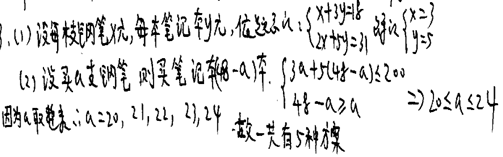 3.(1)设每支钢笔x元,每本笔记本y元,依题意得:{x+3y=18 2x+5y=31 解得{x=3 y=5
(2)设买a支钢笔 则买笔记本(48-a)本. {3a+5(48-a)≤200 48-a≥a ⇒20≤a≤24
因为a取整数∴a=20,21,22,23,24 一共有5种方案